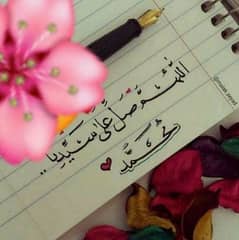 اللهم صل على سيدنا
محمد